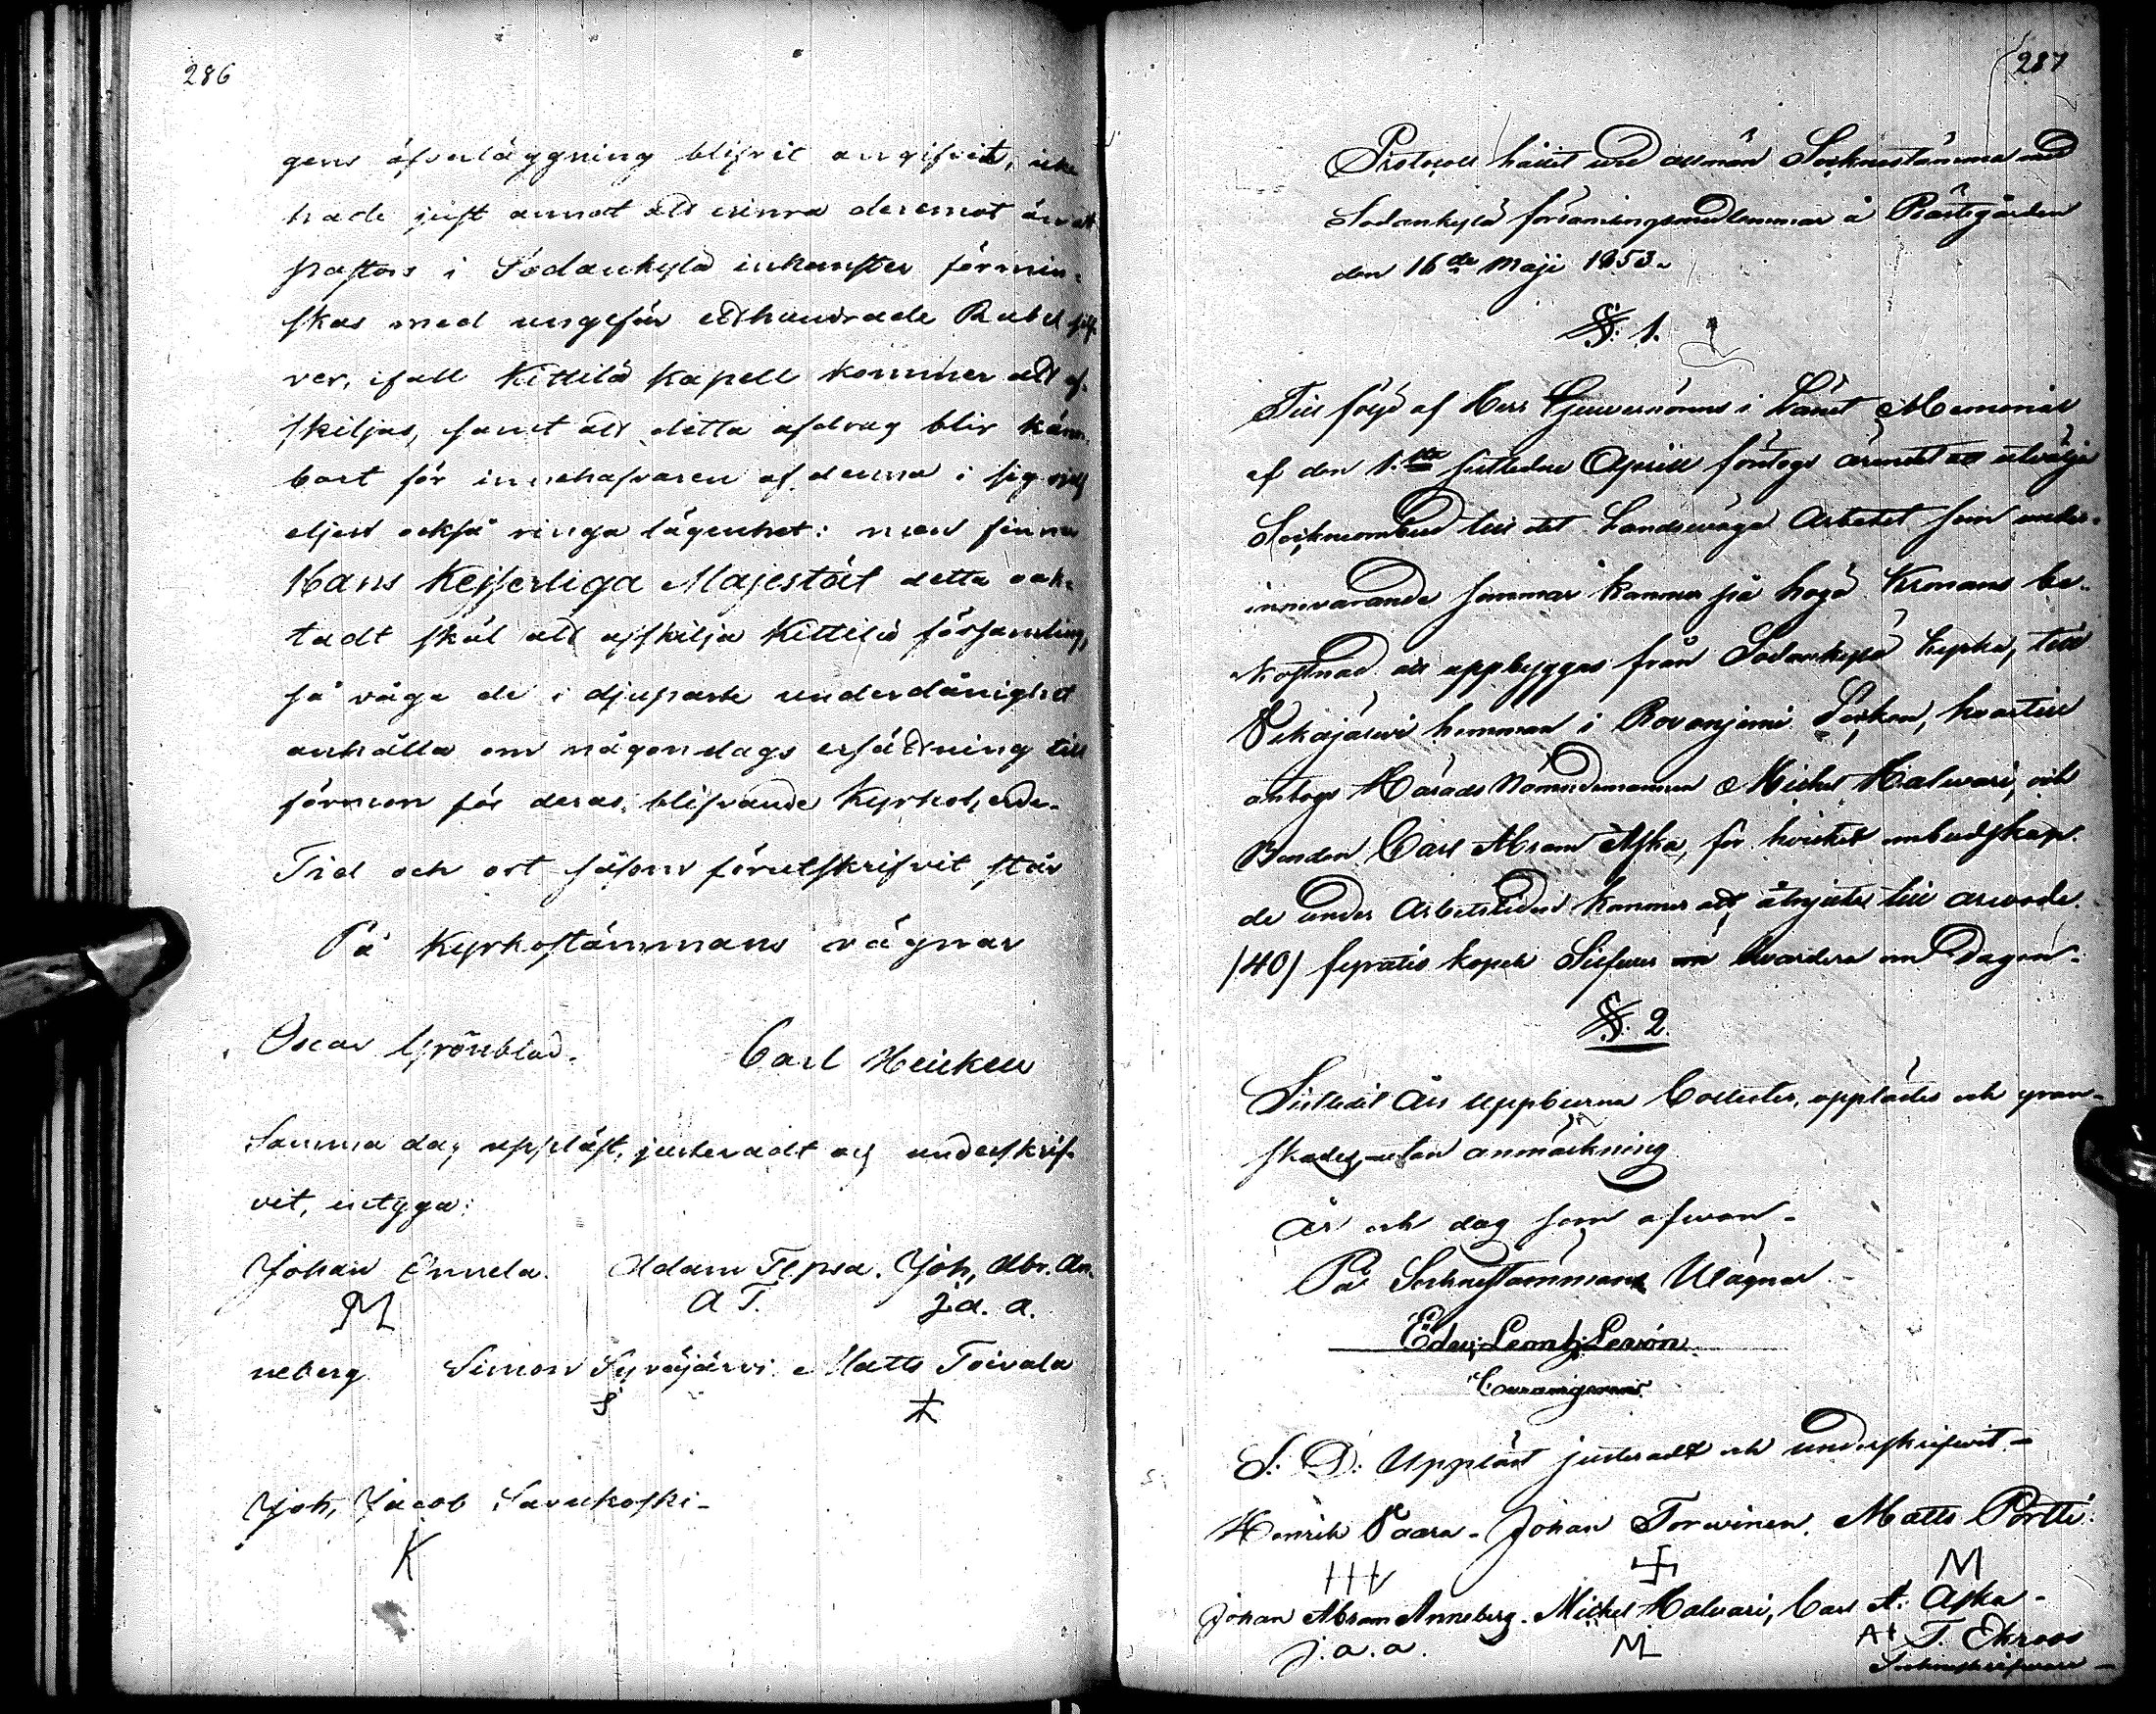 286
gens åfvaläggning blifvit angifvet, icke
hade just annat att erinra deremot än att
pastors i Sodankylä inkomster förmin-
skas med ungefär etthundrade Rubel silf-
ver, ifall Kittilä kapell kommer att af-
skiljas, samt att detta afdrag blir känn-
bart för innehafvaren af denna i sig sjelf
eljest också ringa lägenhet: men finner
Hans Kejserliga Majestät detta oak-
tadt skäl att afskilja Kittilä församling,
så våga de i djupaste underdånighet
anhålla om någondags ersättning till
förmon för deras blifvande Kyrkoherde.
Tid och ort såsom förutskrifvit står
På Kyrkostämmans vägnar
Oscar Grönblad. Carl Heickell
Samma dag uppläst, justeradt och underskrif-
vit, intyga:
Johan Onnela. Adam Tepsa. Joh. Abr. An-
M A T. J. a. a.
neberg Simon Syväjärvi. Matts Toivola
S
Joh. Jacob Savukoski-
K
287
Protocoll hållet wid allmän Socknestämma med
Sodankylä församlingsmedlemmar å Prästgården
den 16de Maji 1853.
§. 1.
Till följd af Herr Guvernörens i Länet Memorial
af den 1.sta sistledne Aprill företogs ärendet att utvälja
Sockneombud till det Landswägs Arbetet som under
innevarande sommar kommer på höga Kronans be-
kostnad att uppbyggas från Sodankylä Kyrka, till
Vikajärwi hemman i Rovaniemi Socken, hvartill
antogs Härads Nämndemannen Michel Halwari, och
Bonden Carl Abram Aska, för hvilket ombudskap
de under Arbetstiden kommer att åtnjuta till arwode
/40/ fyratio kopek Silfwer hvardera om Dagen.
§. 2.
Sistledit Års Uppburna Collecter, upplästes och gran-
skades, utan anmärkning
År och dag som ofwan-
På Sockne Stämmans Wägnar
Edv: Leonh: Levón.
S. D. Uppläst justeradt och underskrifwit-
Henrik Vaara- Johan Torvinen. Matts Pörtti:
M
Johan Abram Anneberg. Michel Halvari, Carl A. Aska-
j. a. a. M A+ T. Ekroos
Sockneskrifvare-